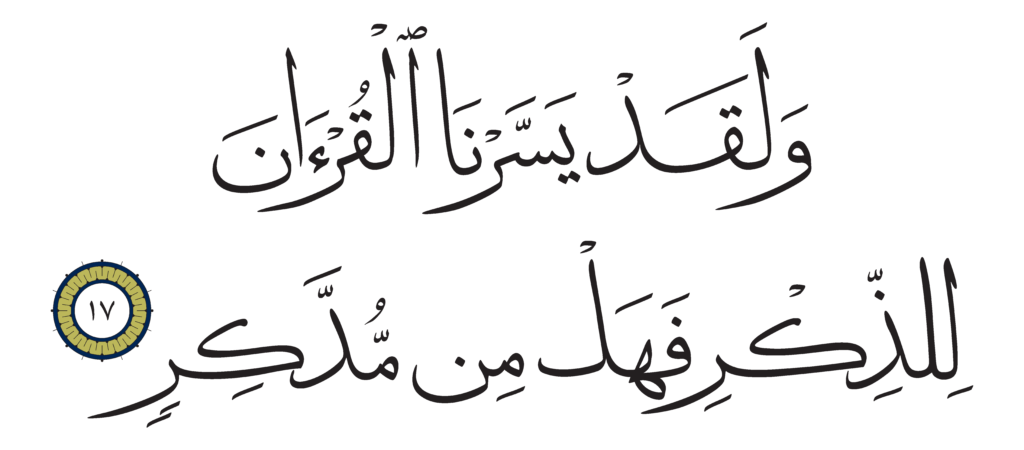 وَلَقَدْ يَسَّرْنَا ٱلْقُرْءَانَ
لِلذِّكْرِ فَهَلْ مِن مُّدَّكِرٍ ١٧